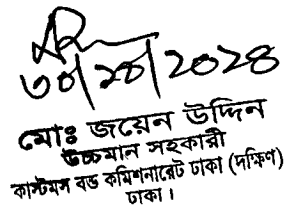 ৩০/১০/2024
মোঃ জয়েন উদ্দিন
উচ্চমান সহকারী
কাস্টমস বন্ড কমিশনারেট ঢাকা (দক্ষিণ)
ঢাকা।